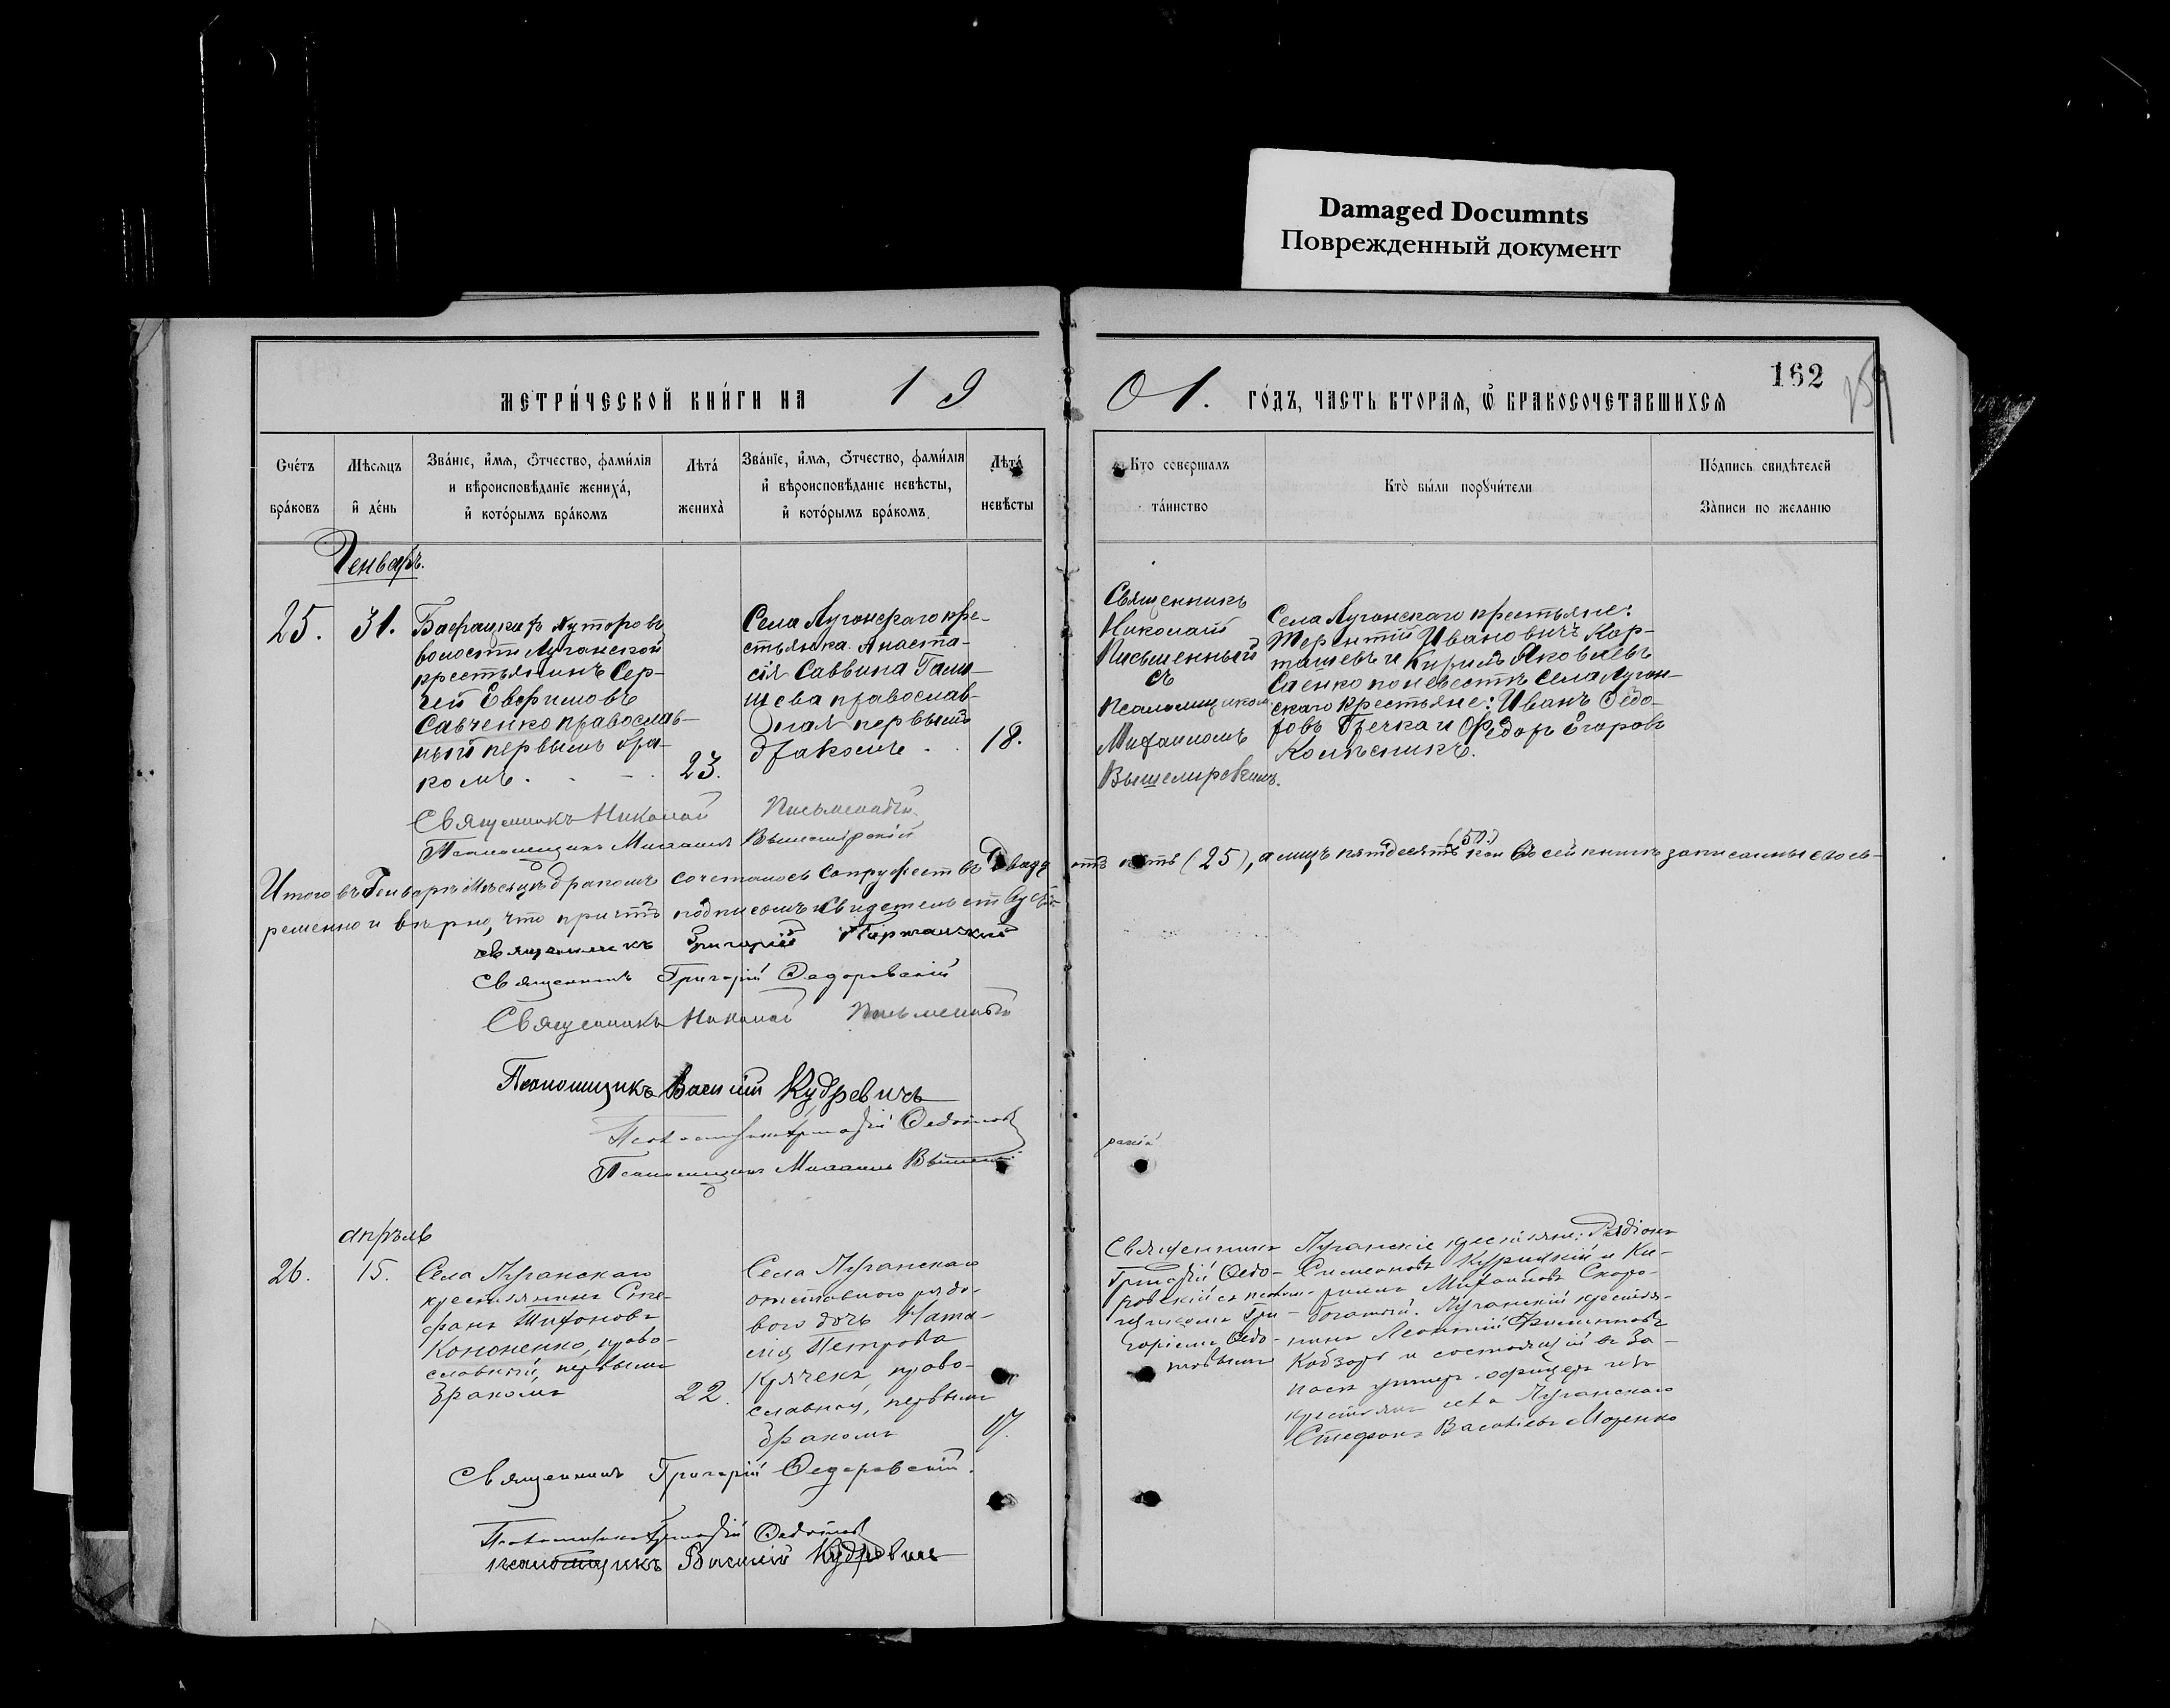 Damaged Documnts
Поврежденный документ
162
159
МЕТРИЧЕСКОЙ КНИГИ НА 19
01. ГОДЪ, ЧАСТЬ ВТОРАЯ, Ѿ БРАКОСОЧЕТАВШИХСЯ
Счетъ браковъ
Мѣсяцъ и день
Званіе, имя, отчество, фамилія
и вѣроисповѣданіе жениха,
и которымъ бракомъ
Лѣта жениха
Званіе, имя, отчество, фамилія
и вѣроисповѣданіе невѣсты,
и которымъ бракомъ.
Лѣта невѣсты
Кто совершалъ
таинство
Кто были поручители
Подпись свидѣтелей
Записи по желанію
Генварь.
25.
31.
хуторовъ
волости Луганской
крестьянинъ Сер-
гій Евфимовъ
Савченко православ-
ный первымъ бра-
комъ.
23.
Села Луганскаго кре-
стьянка Анаста-
сія Саввина Гали-
щева православ-
ная первымъ
бракомъ.
18.
Священникъ
Николай
Письменный
съ
псаломщиком
Михаиломъ
Вышемирскимъ.
Села Луганскаго крестьяне:
Терентій Ивановичъ Кар-
ташевъ и Кирилъ Яковлевъ
Саенко по невѣстѣ села Луган-
скаго крестьяне: Иванъ Ѳедо-
ровъ Гречка и Ѳедоръ Егоровъ
Колѣсникъ.
Священникъ Николай Письменный
Псаломщикъ Михаилъ Вышемірскій
Итого въ Генварѣ мѣсяцѣ бракомъ сочеталось супружествъ двадц
ать пять (25), а лицъ пятьдесятъ (50) кои въ сей книгѣ записаны своев-
ременно и вѣрно, что причтъ подписомъ и свидетельствуетъ
Священникъ Григорій
Священникъ Григорій Ѳедоровскій
Священникъ Николай Письменный
Псаломщикъ Василій Кудревичъ
Псаломщикъ Григорій Ѳедотовъ
Псаломщикъ Михаилъ Вышемі
рскій
апрѣль
26.
15.
Села Луганскаго
крестьянинъ Сте-
фанъ Тихоновъ
Кононенко, право-
славный, первымъ
бракомъ
22.
Села Луганскаго
отставного рядо-
вого дочь Ната-
лія Петрова
Крячекъ, право-
славная, первымъ
бракомъ
17.
Священникъ
Григорій Ѳедо-
ровскій съ псалом-
щикомъ Гри-
горіемъ Ѳедо-
товымъ
Луганскіе крестьяне: Радіонъ
Симеоновъ Курицкій и Ки-
риллъ Михаиловъ Скоро-
богатый. Луганскій крестья-
нинъ Леонтій Филипповъ
Кобзарь и состоящій въ За-
пасѣ унтеръ-офицеръ изъ
крестьянъ села Луганскаго
Стефанъ Васильевъ
Священникъ Григорій Ѳедоровскій.
Псаломщикъ Григорій Ѳедотовъ
псаломщикъ Василій Кудревичъ